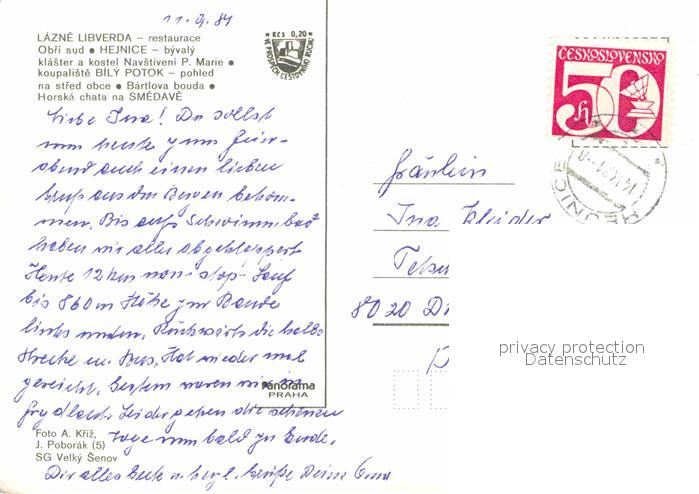 11. 9. 81
LÁZNĚ LIBVERDA – restaurace
Obří sud ● HEJNICE – bývalý
klášter a kostel Navštívení P. Marie ●
koupaliště BÍLÝ POTOK – pohled
na střed obce ● Bártlova bouda ●
Horská chata na SMĚDAVĚ
Kčs 0,20
VE PROSPĚCH CESTOVNÍHO RUCHU
ČESKOSLOVENSKO
50 h
HEJNICE
Liebe Ina! Du sollst
nun heute zum Feier-
abend auch einen lieben
Gruß aus den Bergen bekom-
men. Bis aufs Schwimmbad
haben wir alles abgeklappert
Heute 12 km non-stop-Lauf
bis 860 m Höhe zur Baude
links unten. Rückwärts die halbe
Strecke m. Bus. Hat wieder mal
gereicht. Gestern waren wir in
Frydlant. Leider gehen die schönen
Tage nun bald zu Ende.
Dir alles Gute u. herzl. Grüße Deine
Fräulein
Ina
8020
privacy protection
Datenschutz
panorama
PRAHA
Foto A. Kříž,
J. Poborák (5)
SG Velký Šenov